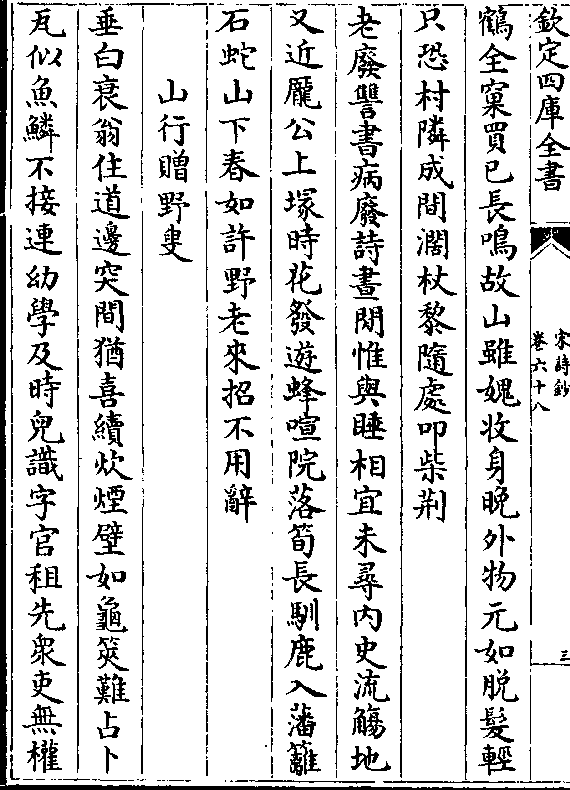 欽定四庫全書
宋詩鈔
卷六十八
三
鶴全窠買已長鳴故山雖媿收身晚外物元如脫髮輕
只恐村隣成間濶杖藜隨處叩柴荆
老廢讐書病廢詩晝閒惟與睡相宜未尋内史流觴地
又近龎公上塚時花發遊蜂喧院落筍長馴鹿入藩籬
石蛇山下春如許野老來招不用辭
山行贈野叟
垂白衰翁住道邊突間猶喜續炊煙壁如龜筴難占卜
瓦似魚鱗不接連幼學及時兒識字官租先衆吏無權